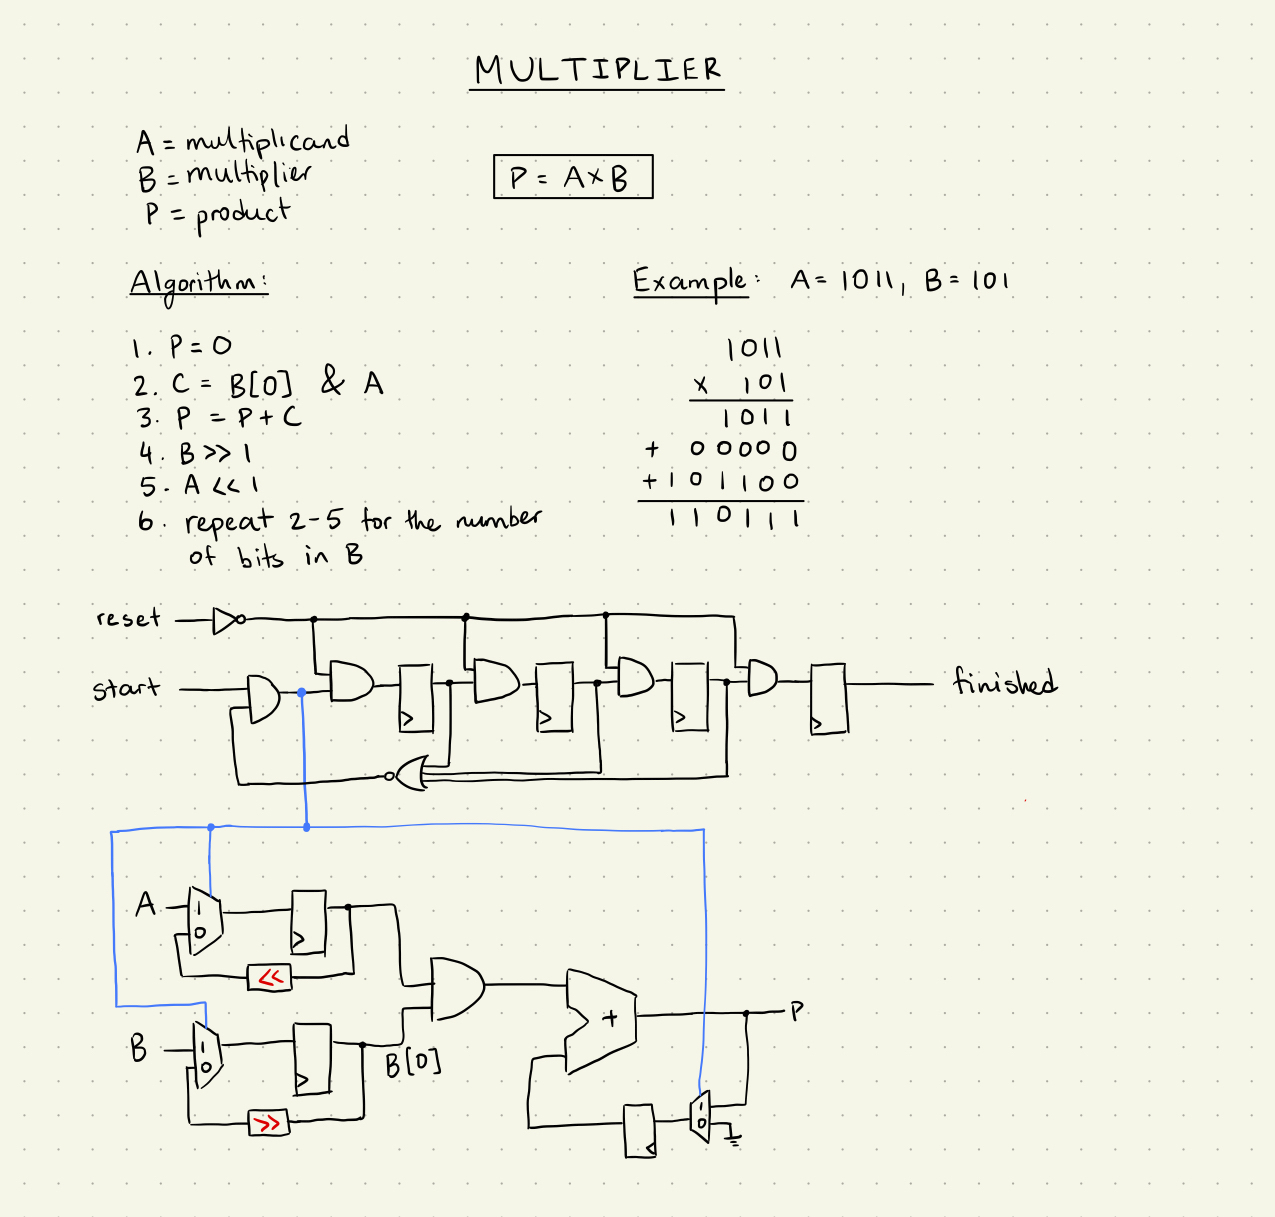 MULTIPLIER
A = multiplicand
B = multiplier
P = product
P = A×B
Algorithm:
1. P = 0
2. C = B[0] & A
3. P = P + C
4. B >> 1
5. A << 1
6. repeat 2-5 for the number
of bits in B
Example: A = 1011, B = 101
1011
× 101
1011
+ 00000
+ 101100
110111
reset
start
finished
A
1
0
<<
B
1
0
>>
B[0]
+
P
1
0